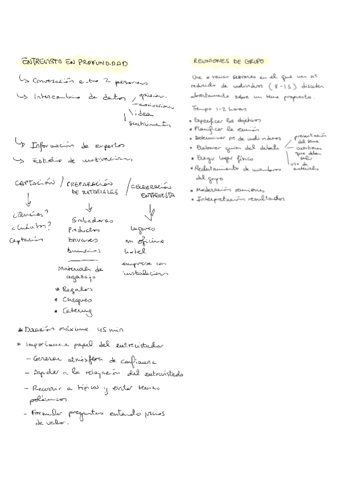 ENTREVISTA EN PROFUNDIDAD
↳ Conversación entre 2 personas
↳ Intercambio de datos
opiniones
motivaciones
ideas
sentimientos
↳ Información de expertos
↳ Estudio de motivaciones
CAPTACIÓN / PREPARACIÓN DE MATERIALES / CELEBRACIÓN ENTREVISTA
¿Quiénes?
¿Cuántos?
Captación
Grabadoras
Productos
Materiales de
Regalos
Cheques
Catering
lugares
en oficina
hotel
empresa con
instalaciones
* Duración máxima 45 min
* Importance papel del entrevistador
- Generar atmósfera de confianza
- Ayudar a la relajación del entrevistado
- Recurrir a tópicos y evitar temas
polémicos
- Formular preguntas evitando juicios
de valor.
REUNIONES DE GRUPO
Una o varias sesiones en el que un nº
reducido de individuos (8-15) discuten
abiertamente sobre un tema propuesto.
Tiempo 1-2 horas
• Especificar los objetivos
• Planificar la reunión
• Determinar nº de individuos
• Elaborar guion del debate
presentación
del tema
cuestiones
que deben
uso de
materiales
• Elegir lugar físico
• Reclutamiento de miembros
del grupo
• Moderación reuniones
• Interpretación resultados